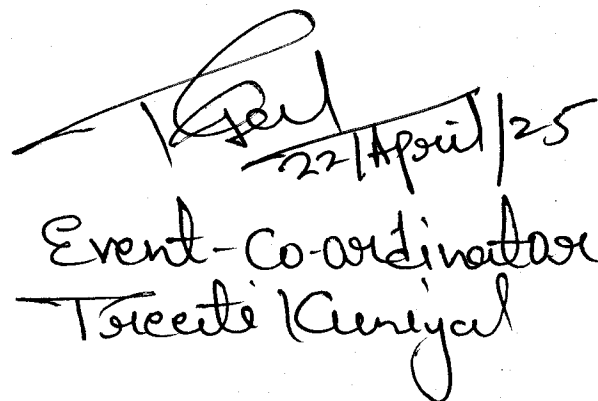 22/April/25
Event-Co-ordinator
Treeti Kuniyal